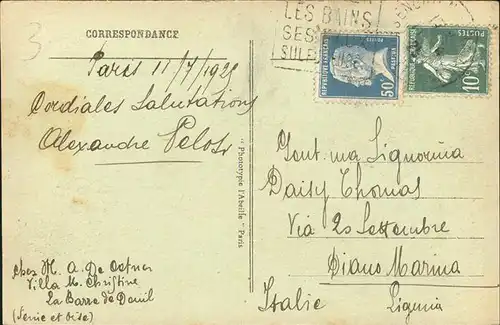 3
CORRESPONDANCE
LES BAINS
SES
SULFUREUSES
REPUBLIQUE FRANÇAISE
POSTES
PASTEUR
50c
POSTES
REPUBLIQUE FRANÇAISE
10c
Paris 11/7/192
Cordiales Salutations
Alexandre Pelosi
"Phototypie l'Abeille" - Paris
Gent.ma Signorina
Daisy Thomas
Via 20 Settembre
Diano Marina
Italie Liguria
Chez M. A. De
Villa M. Christine
La Barre de Deuil
(Seine et Oise)